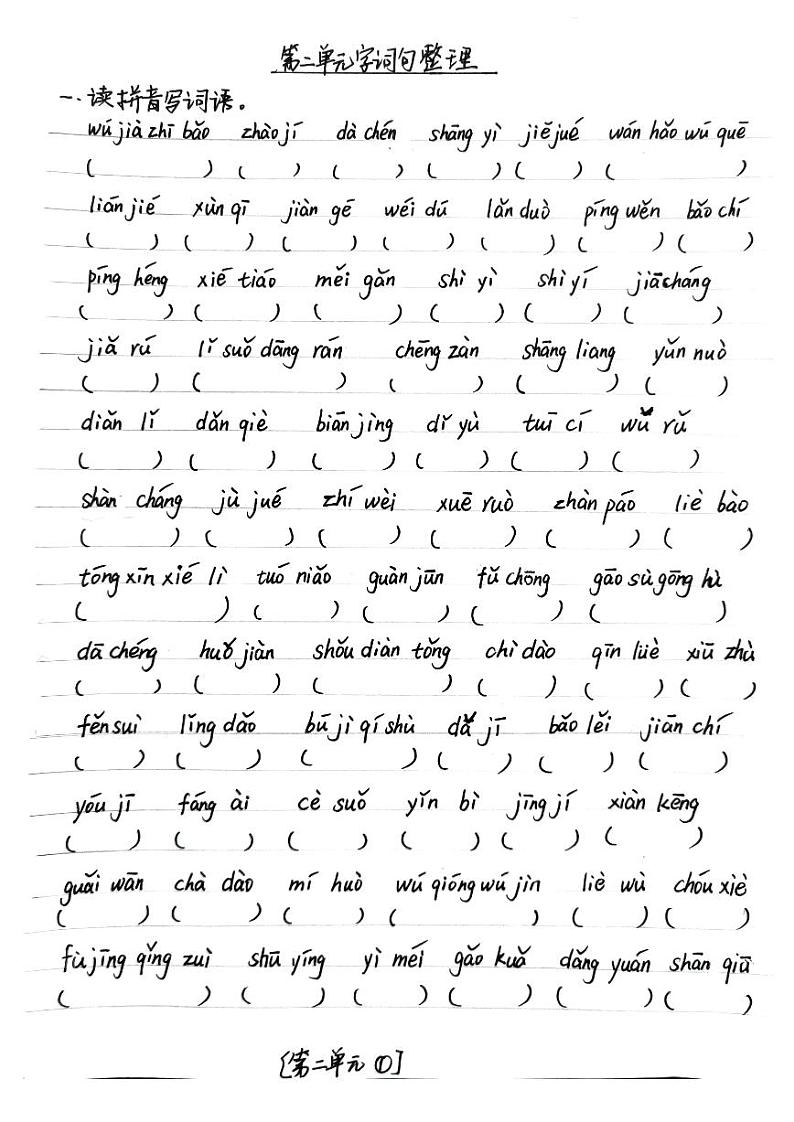 第二单元字词句整理
一.读拼音写词语。
wú jià zhī bǎo zhào jí dà chén shāng yì jiě jué wán hǎo wú quē
( ) ( ) ( ) ( ) ( ) ( )
lián jié xùn qī jiàn gē wéi dú lǎn duò píng wěn bǎo chí
( ) ( ) ( ) ( ) ( ) ( ) ( )
píng héng xié tiáo měi gǎn shì yì shì yí jiā cháng
( ) ( ) ( ) ( ) ( ) ( )
jiǎ rú lǐ suǒ dāng rán chēng zàn shāng liang yǔn nuò
( ) ( ) ( ) ( ) ( )
diǎn lǐ dǎn qiè biān jìng dǐ yù tuī cí wǔ rǔ
( ) ( ) ( ) ( ) ( ) ( )
shàn cháng jù jué zhí wèi xuē ruò zhàn páo liè bào
( ) ( ) ( ) ( ) ( ) ( )
tóng xīn xié lì tuó niǎo guàn jūn fǔ chōng gāo sù gōng lù
( ) ( ) ( ) ( ) ( )
dā chéng huǒ jiàn shǒu diàn tǒng chì dào qīn lüè xiū zhù
( ) ( ) ( ) ( ) ( ) ( )
fěn suì lǐng dǎo bú jì qí shù dǎ jī bǎo lěi jiān chí
( ) ( ) ( ) ( ) ( ) ( )
yóu jī fáng ài cè suǒ yǐn bì jīng jí xiàn kēng
( ) ( ) ( ) ( ) ( ) ( )
guǎi wān chà dào mí huò wú qióng wú jìn liè wù chóu xiè
( ) ( ) ( ) ( ) ( ) ( )
fù jīng qǐng zuì shū yíng yì méi gǎo kuǎ dǎng yuán shān qiū
( ) ( ) ( ) ( ) ( ) ( )
[第二单元 ①]